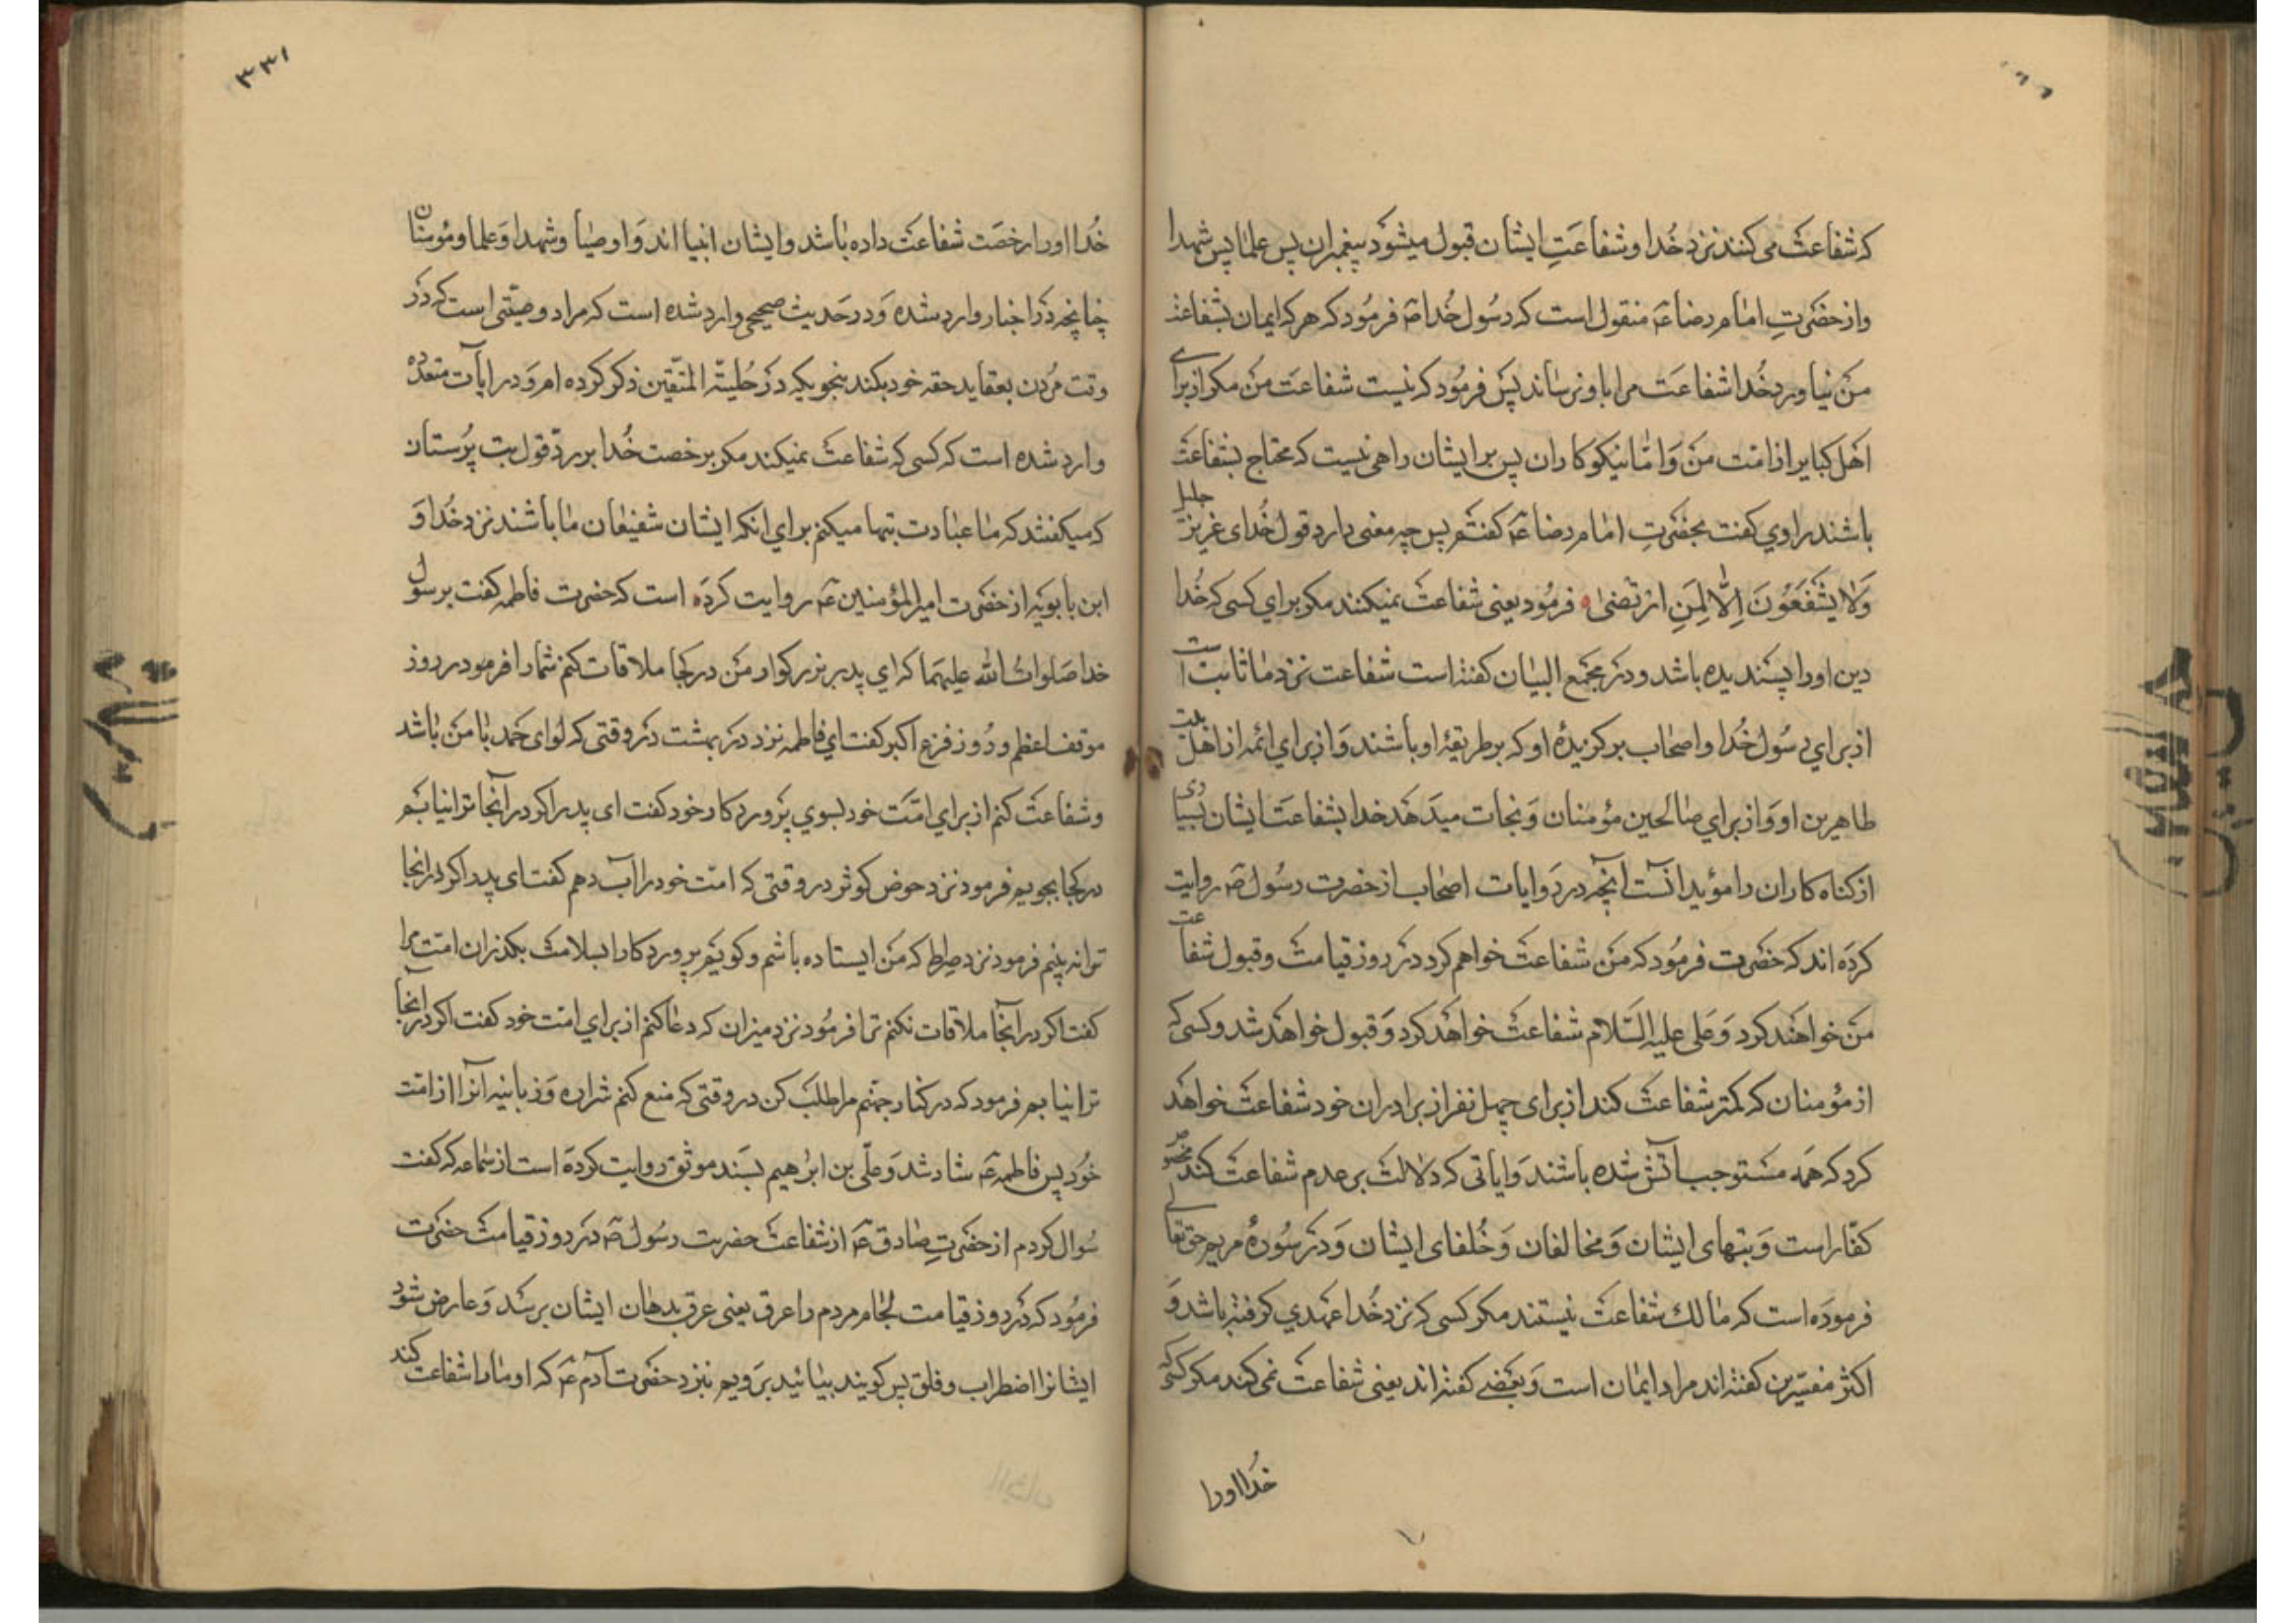 که شفاعت می کنند نزد خدا و شفاعت ایشان قبول میشود پیغمبران پس علما پس شهدا
و از حضرت امام رضا ع منقول است که رسول خدا ص فرمود که هر که ایمان بشفاعت
من نیاورد خدا شفاعت مرا باو نرساند پس فرمود که نیست شفاعت من مکر از برای
اهل کبایر از امت من و اما نیکوکاران پس بر ایشان راهی نیست که محتاج بشفاعت
باشند راوی کفت بحضرت امام رضا ع کفتم پس چه معنی دارد قول خدای عزیز جلیل
وَلا یَشْفَعُونَ اِلّا لِمَنِ ارْتَضیٰ فرمود یعنی شفاعت نمیکنند مکر برای کسی که خدا
دین او را پسندیده باشد و در مجمع البیان کفته است شفاعت نزد ما ثابت است
از برای رسول خدا و اصحاب برکزیدهٔ او که بر طریقهٔ او باشند و از برای ائمه از اهل بیت
طاهرین او و از برای صالحین مؤمنان و نجات میدهد خدا بشفاعت ایشان بسیاری
از کناه کاران را مؤید انست آنچه در روایات اصحاب از حضرت رسول ص روایت
کرده اند که حضرت فرمود که من شفاعت خواهم کرد در روز قیامت و قبول شفاعت
من خواهند کرد و علی علیه السلام شفاعت خواهد کرد و قبول خواهد شد و کسی که
از مؤمنان که کمتر شفاعت کند از برای چهل نفر از برادران خود شفاعت خواهد
کرد که همه مستوجب آتش شده باشند و ایاتی که دلالت بر عدم شفاعت کند مخصوص
کفار است و بتهای ایشان و مخالفان و خلفای ایشان و در سورهٔ مریم حق تعالی
فرموده است که مالک شفاعت نیستند مکر کسی که نزد خدا عهدی کرفته باشد و
اکثر مفسرین کفته اند مراد ایمان است و بعضی کفته اند یعنی شفاعت نمی کند مکر کسی که
خدا او را
۳۳۱
خدا او را رخصت شفاعت داده باشد و ایشان انبیا اند و اوصیا و شهدا و علما و مؤمنان
چنانچه در اخبار وارد شده و در حدیث صحیحی وارد شده است که مراد وصیتی است که در
وقت مردن بعقاید حقه خود بکند بنحویکه در حلیة المتقین ذکر کرده ام و در ایات متعدده
وارد شده است که کسی که شفاعت نمیکند مکر برخصت خدا بر رد قول بت پرستان
که میکفتند که ما عبادت بتها میکنم برای انکه ایشان شفیعان ما باشند نزد خدا و
ابن بابویه از حضرت امیرالمؤمنین ع روایت کرده است که حضرت فاطمه کفت برسول
خدا صلوات الله علیهما که ای پدر بزرکوار من در کجا ملاقات کنم شما را فرمود در روز
موقف اعظم و روز فزع اکبر کفت ای فاطمه نزد در بهشت در وقتی که لوای حمد با من باشد
و شفاعت کنم از برای امت خود بسوی پروردکار خود کفت ای پدر اکر در آنجا ترا نیابم
در کجا بجویم فرمود نزد حوض کوثر در وقتی که امت خود را آب دهم کفت ای پدر اکر در انجا
ترا نه بینم فرمود نزد صراط که من ایستاده باشم و کویم پروردکارا بسلامت بکذران امت مرا
کفت اکر در آنجا ملاقات نکنم ترا فرمود نزد میزان که دعا کنم از برای امت خود کفت اکر در آنجا
ترا نیابم فرمود که در کنار جهنم مرا طلب کن در وقتی که منع کنم شراره و زبانیه آنرا از امت
خود پس فاطمه ع شاد شد و علی بن ابرٰهیم بسند موثق روایت کرده است از سماعه که کفت
سوال کردم از حضرت صادق ع از شفاعت حضرت رسول ص در روز قیامت حضرت
فرمود که در روز قیامت لجام مردم را عرق یعنی عرق بدهان ایشان برسد و عارض شود
ایشانرا اضطراب و قلق پس کویند بیائید برویم بنزد حضرت آدم ع که او ما را شفاعت کند